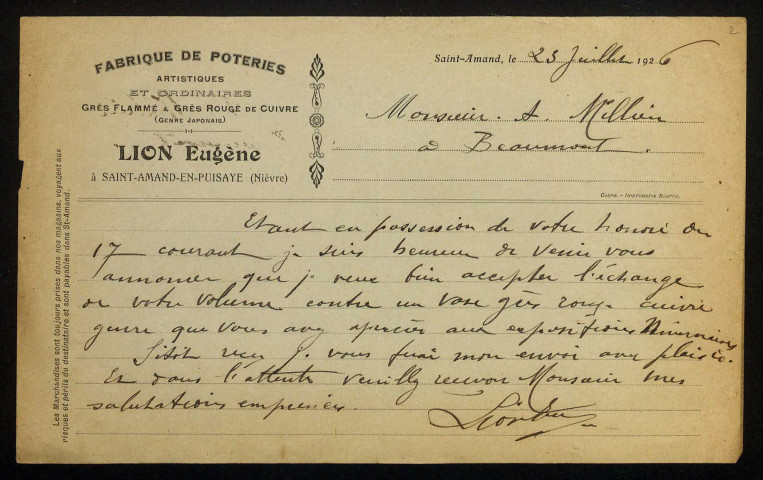 2
FABRIQUE DE POTERIES
ARTISTIQUES
ET ORDINAIRES
GRÈS FLAMMÉ & GRÈS ROUGE DE CUIVRE
(GENRE JAPONAIS)
LION Eugène
à SAINT-AMAND-EN-PUISAYE (Nièvre)
Saint-Amand, le 23 Juillet 1926
Monsieur A. Millien
à Beaumont.
Cosne. — Imprimerie Bourra.
Les Marchandises sont toujours prises dans nos magasins, voyagent aux
risques et périls du destinataire et sont payables dans St-Amand.
Etant en possession de votre honoré du
17 courant je suis heureux de venir vous
annoncer que je veux bien accepter l'échange
de votre volume contre un vase grès rouge cuivre
genre que vous avez apprécié aux expositions Nivernaises
Sitôt reçu je vous ferai mon envoi avec plaisir.
Et dans l'attente veuillez recevoir Monsieur mes
salutations empressées.
Lion Eu